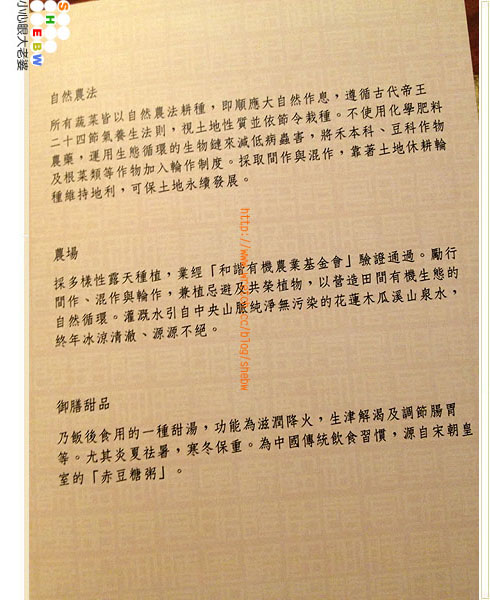 SHEBW
小心眼大老婆
自然農法
所有蔬菜皆以自然農法耕種，即順應大自然作息，遵循古代帝王
二十四節氣養生法則，視土地性質並依節令栽種。不使用化學肥料
農藥，運用生態循環的生物鏈來減低病蟲害，將禾本科、豆科作物
及根菜類等作物加入輪作制度。採取間作與混作，靠著土地休耕輪
種維持地利，可保土地永續發展。
農場
採多樣性露天種植，業經「和諧有機農業基金會」驗證通過。勵行
間作、混作與輪作，兼植忌避及共榮植物，以營造田間有機生態的
自然循環。灌溉水引自中央山脈純淨無污染的花蓮木瓜溪山泉水，
終年冰涼清澈、源源不絕。
御膳甜品
乃飯後食用的一種甜湯，功能為滋潤降火，生津解渴及調節腸胃
等。尤其炎夏祛暑，寒冬保重。為中國傳統飲食習慣，源自宋朝皇
室的「赤豆糖粥」。